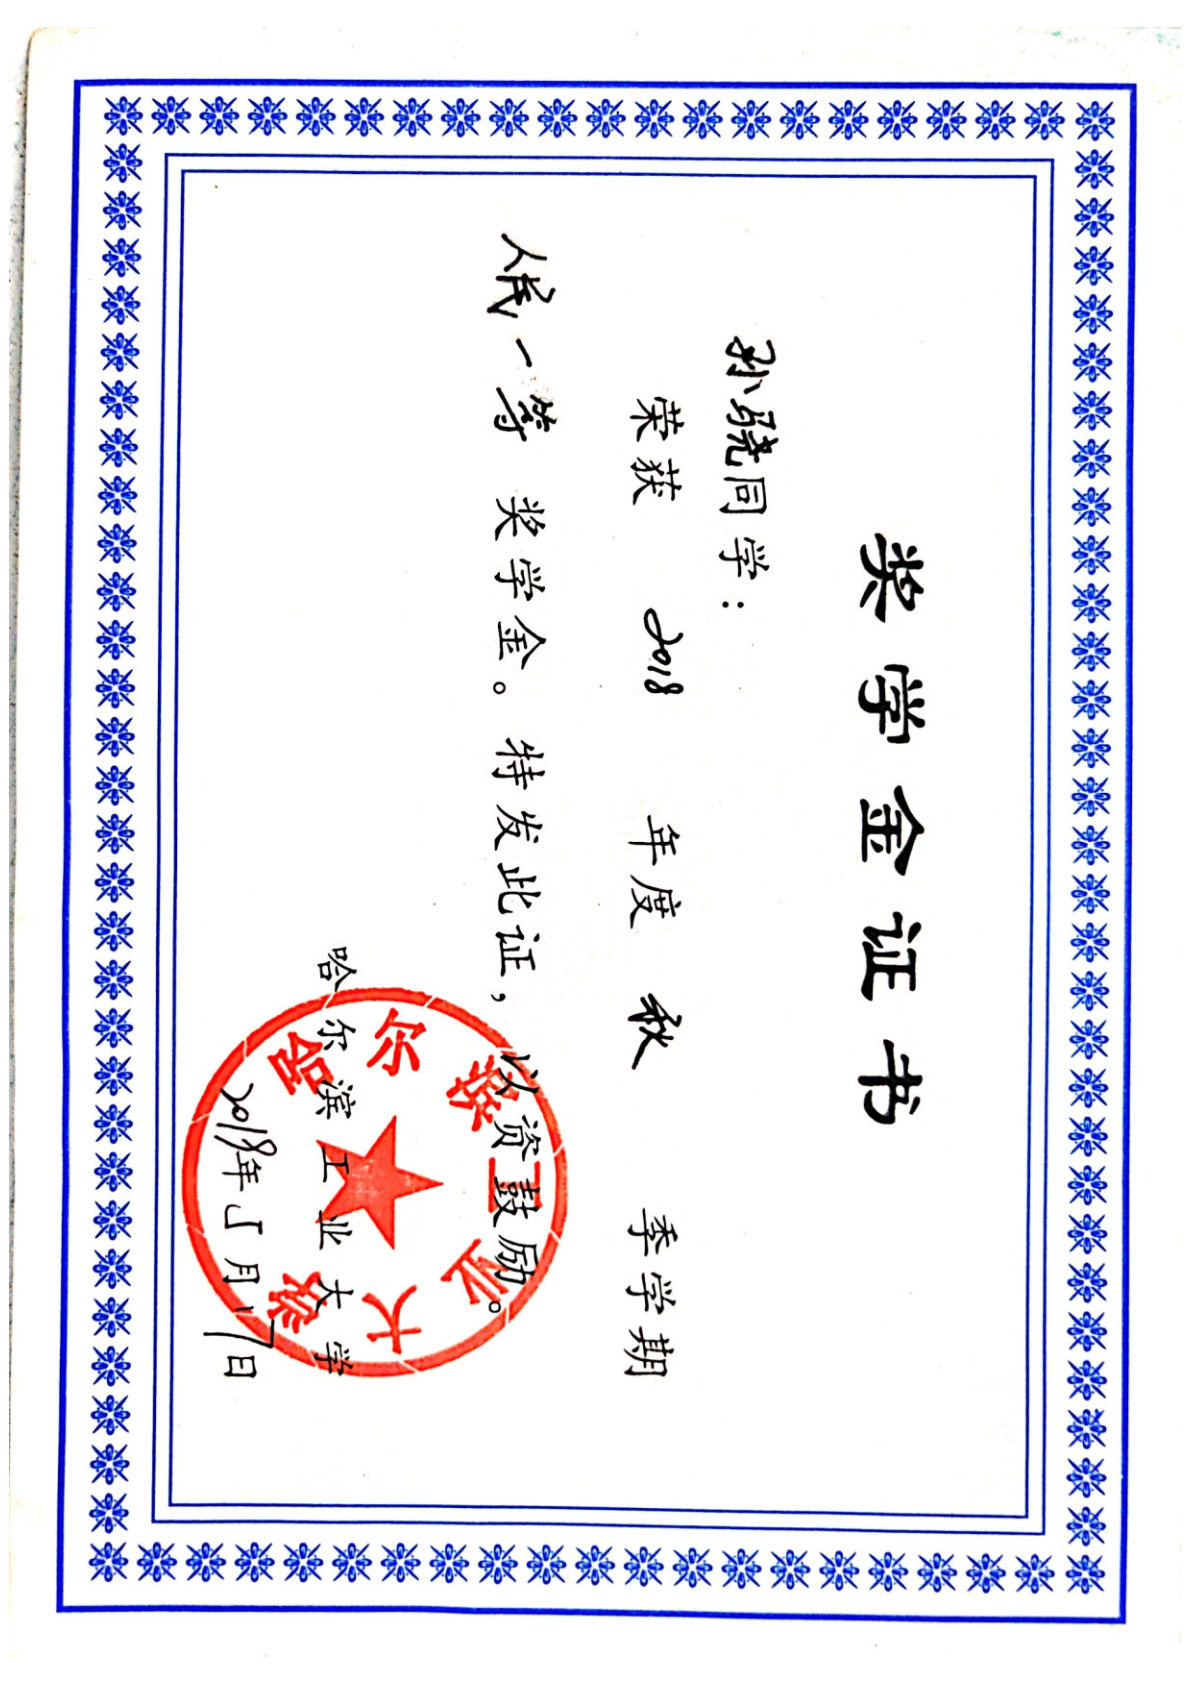 奖学金证书
孙骁同学：
荣获 2018 年度 秋 季学期
人民一等 奖学金。特发此证，以资鼓励。
哈尔滨工业大学
年 月 17日
哈尔滨工业大学